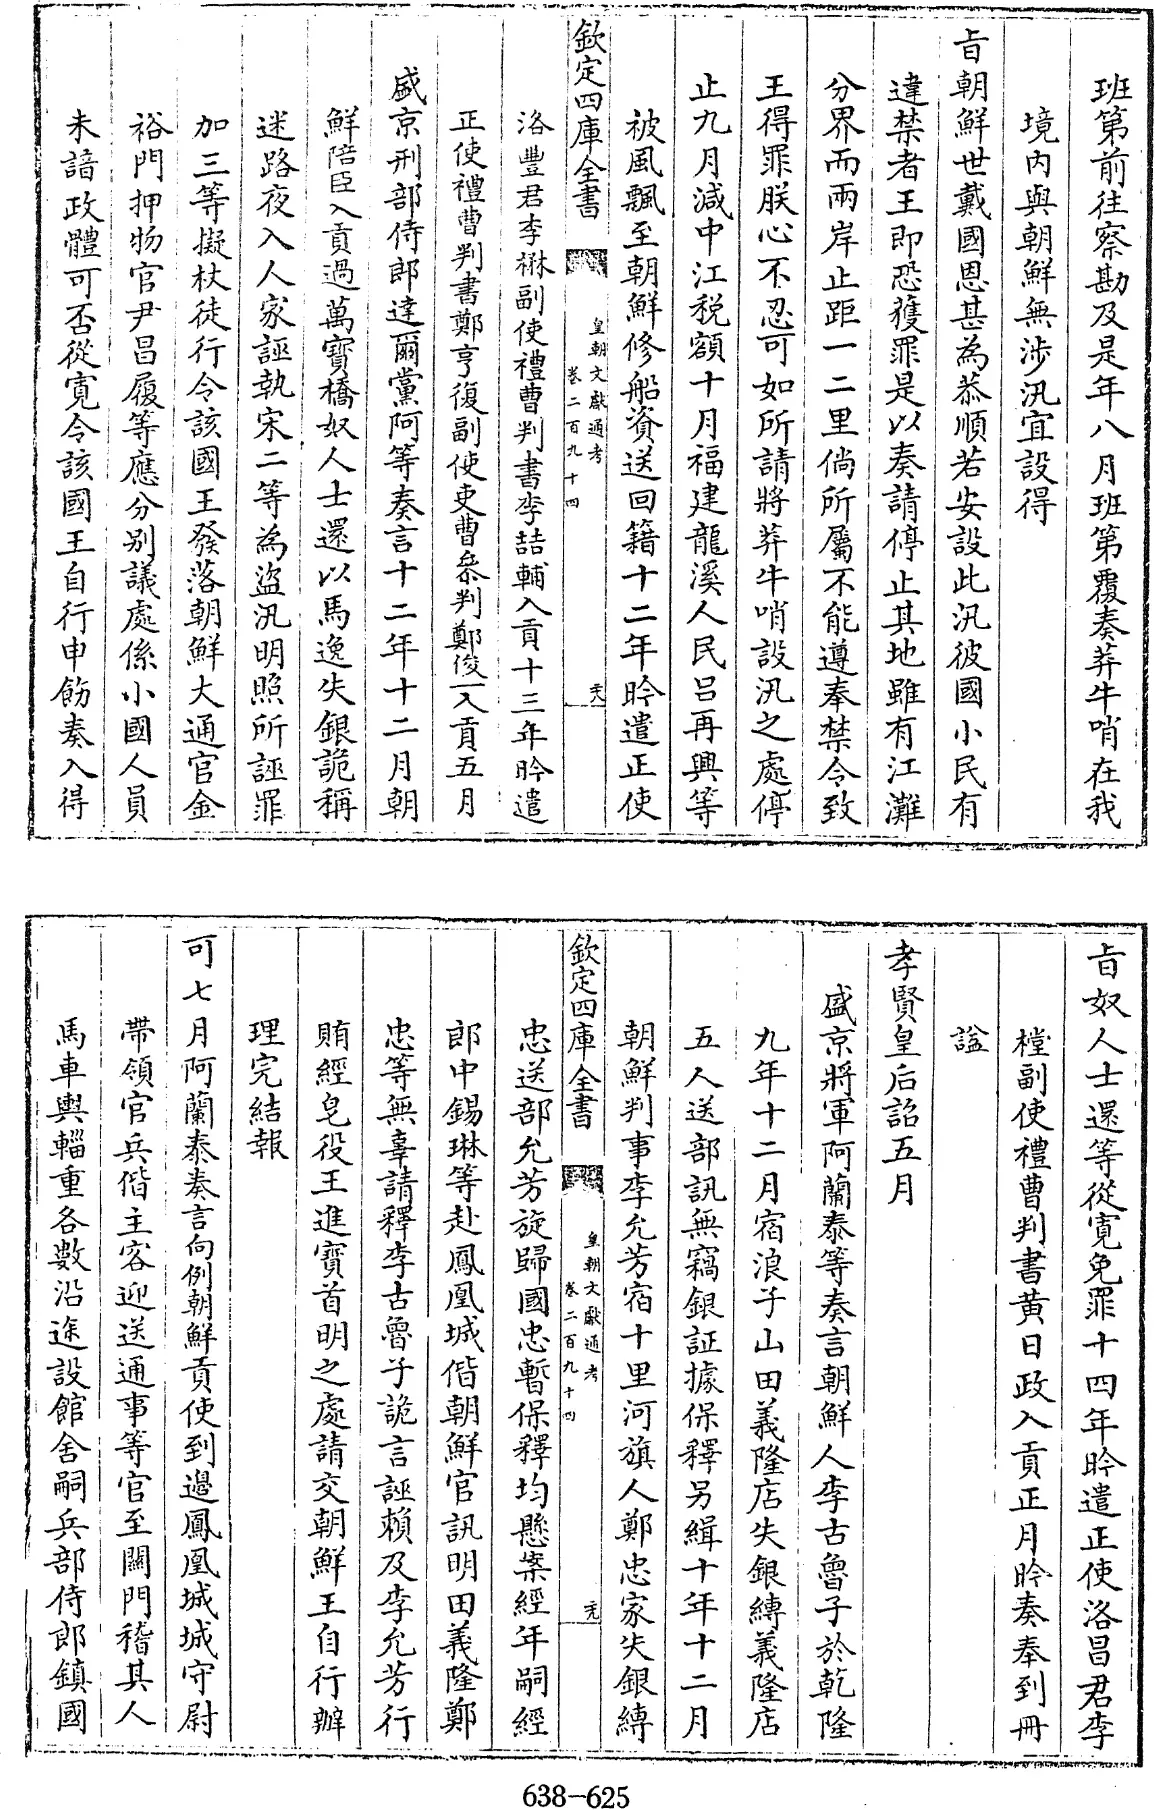 班第前往察勘及是年八月班第覆奏莽牛哨在我
境內與朝鮮無涉汛宜設得
旨朝鮮世戴國恩甚為恭順若安設此汛彼國小民有
違禁者王即恐獲罪是以奏請停止其地雖有江灘
分界而兩岸止距一二里倘所屬不能遵奉禁令致
王得罪朕心不忍可如所請將莽牛哨設汛之處停
止九月減中江稅額十月福建龍溪人民呂再興等
被風飄至朝鮮修船資送回籍十二年昑遣正使
欽定四庫全書
皇朝文獻通考
卷二百九十四
天
洛豐君李楙副使禮曹判書李喆輔入貢十三年昑遣
正使禮曹判書鄭亨復副使吏曹叅判鄭俊一入貢五月
盛京刑部侍郎達爾黨阿等奏言十二年十二月朝
鮮陪臣入貢過萬寶橋奴人士還以馬逸失銀詭稱
迷路夜入人家誣執宋二等為盜汛明照所誣罪
加三等擬杖徒行令該國王發落朝鮮大通官金
裕門押物官尹昌履等應分別議處係小國人員
未諳政體可否從寬令該國王自行申飭奏入得
旨奴人士還等從寬免罪十四年昑遣正使洛昌君李
樘副使禮曹判書黄日政入貢正月昑奏奉到冊
諡
孝賢皇后詔五月
盛京將軍阿蘭泰等奏言朝鮮人李古魯子於乾隆
九年十二月宿浪子山田義隆店失銀縛義隆店
五人送部訊無竊銀証據保釋另緝十年十二月
朝鮮判事李允芳宿十里河旗人鄭忠家失銀縛
欽定四庫全書
皇朝文獻通考
卷二百九十四
元
忠送部允芳旋歸國忠暫保釋均懸案經年嗣經
郎中錫琳等赴鳳凰城偕朝鮮官訊明田義隆鄭
忠等無辜請釋李古魯子詭言誣賴及李允芳行
賄經皂役王進寶首明之處請交朝鮮王自行辦
理完結報
可七月阿蘭泰奏言向例朝鮮貢使到邊鳳凰城城守尉
帶領官兵偕主客迎送通事等官至關門稽其人
馬車輿輜重各數沿途設館舍嗣兵部侍郎鎮國
638-625